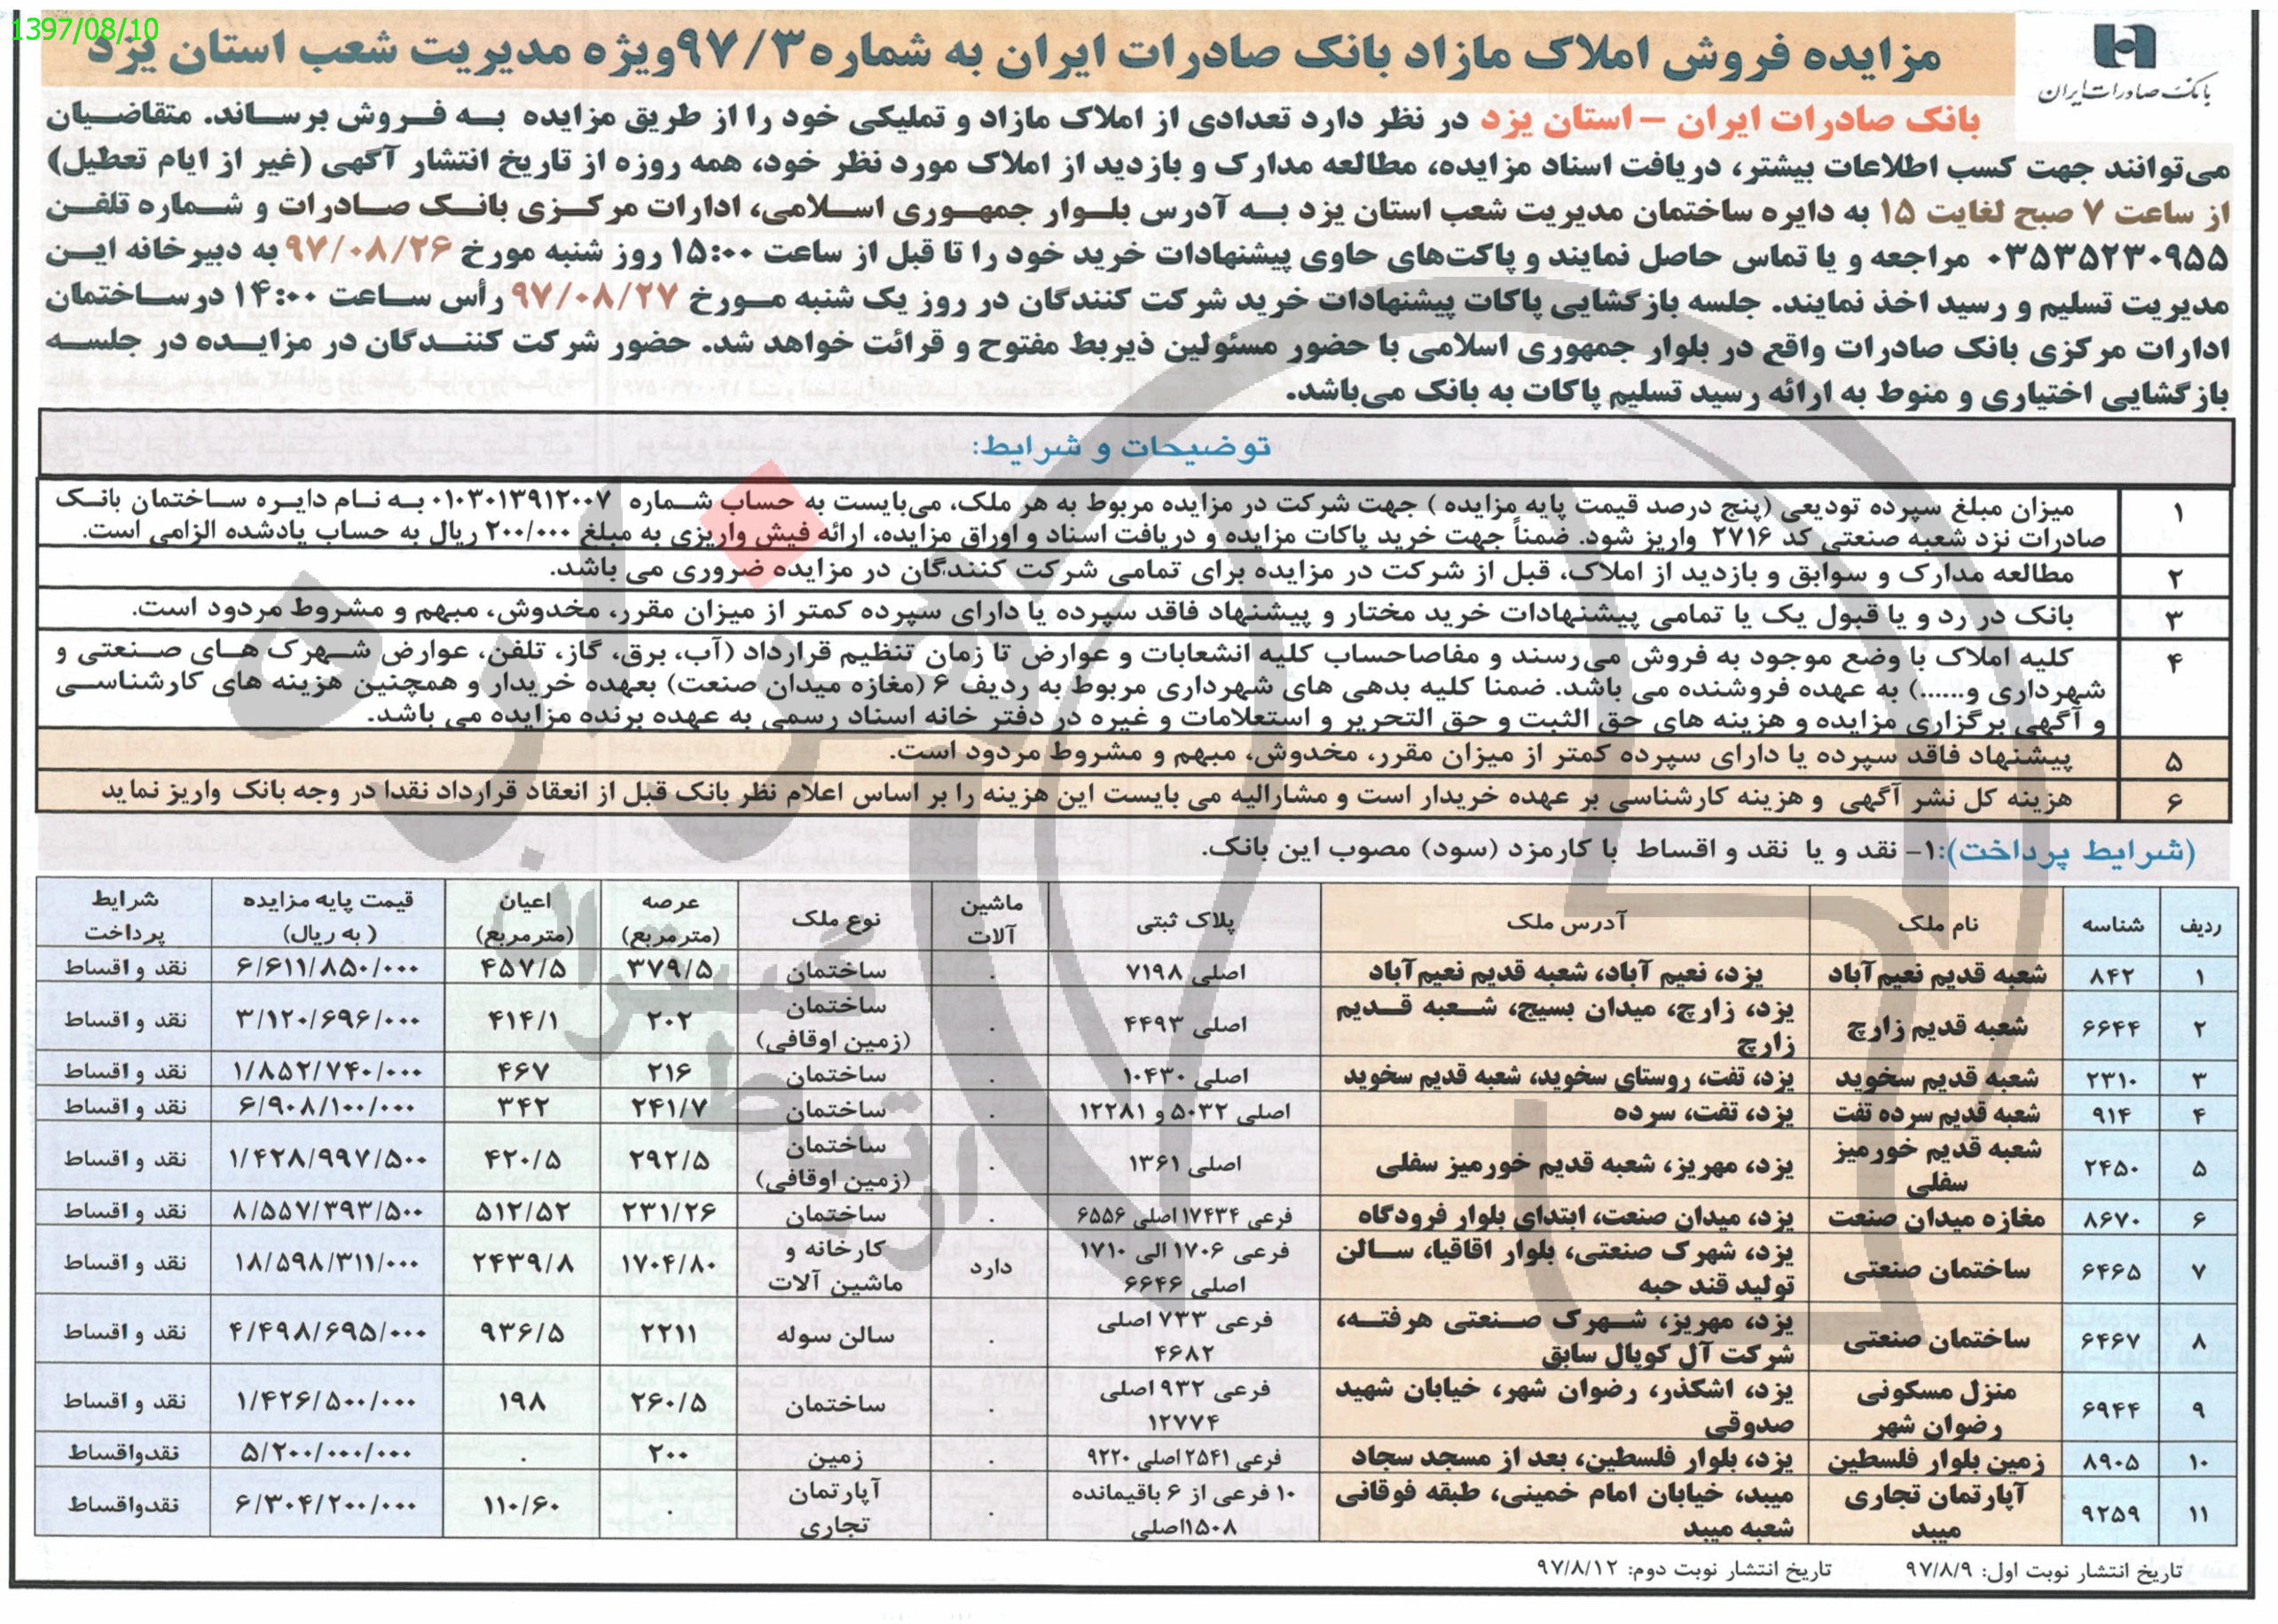 1397/08/10
بانک صادرات ایران
مزایده فروش املاک مازاد بانک صادرات ایران به شماره ۹۷/۳ ویژه مدیریت شعب استان یزد
بانک صادرات ایران - استان یزد در نظر دارد تعدادی از املاک مازاد و تملیکی خود را از طریق مزایده به فروش برساند. متقاضیان
می‌توانند جهت کسب اطلاعات بیشتر، دریافت اسناد مزایده، مطالعه مدارک و بازدید از املاک مورد نظر خود، همه روزه از تاریخ انتشار آگهی (غیر از ایام تعطیل)
از ساعت ۷ صبح لغایت ۱۵ به دایره ساختمان مدیریت شعب استان یزد به آدرس بلوار جمهوری اسلامی، ادارات مرکزی بانک صادرات و شماره تلفن
۰۳۵۳۵۲۳۰۹۵۵ مراجعه و یا تماس حاصل نمایند و پاکت‌های حاوی پیشنهادات خرید خود را تا قبل از ساعت ۱۵:۰۰ روز شنبه مورخ ۹۷/۰۸/۲۶ به دبیرخانه این
مدیریت تسلیم و رسید اخذ نمایند. جلسه بازگشایی پاکات پیشنهادات خرید شرکت کنندگان در روز یک شنبه مورخ ۹۷/۰۸/۲۷ رأس ساعت ۱۴:۰۰ در ساختمان
ادارات مرکزی بانک صادرات واقع در بلوار جمهوری اسلامی با حضور مسئولین ذیربط مفتوح و قرائت خواهد شد. حضور شرکت کنندگان در مزایده در جلسه
بازگشایی اختیاری و منوط به ارائه رسید تسلیم پاکات به بانک می‌باشد.
توضیحات و شرایط:
۱ میزان مبلغ سپرده تودیعی (پنج درصد قیمت پایه مزایده ) جهت شرکت در مزایده مربوط به هر ملک، می‌بایست به حساب شماره ۰۱۰۳۰۱۳۹۱۲۰۰۷ به نام دایره ساختمان بانک
صادرات نزد شعبه صنعتی کد ۲۷۱۶ واریز شود. ضمناً جهت خرید پاکات مزایده و دریافت اسناد و اوراق مزایده، ارائه فیش واریزی به مبلغ ۲۰۰/۰۰۰ ریال به حساب یادشده الزامی است.
۲ مطالعه مدارک و سوابق و بازدید از املاک، قبل از شرکت در مزایده برای تمامی شرکت کنندگان در مزایده ضروری می باشد.
۳ بانک در رد و یا قبول یک یا تمامی پیشنهادات خرید مختار و پیشنهاد فاقد سپرده یا دارای سپرده کمتر از میزان مقرر، مخدوش، مبهم و مشروط مردود است.
۴ کلیه املاک با وضع موجود به فروش می‌رسند و مفاصاحساب کلیه انشعابات و عوارض تا زمان تنظیم قرارداد (آب، برق، گاز، تلفن، عوارض شهرک های صنعتی و
شهرداری و......) به عهده فروشنده می باشد. ضمنا کلیه بدهی های شهرداری مربوط به ردیف ۶ (مغازه میدان صنعت) بعهده خریدار و همچنین هزینه های کارشناسی
و آگهی برگزاری مزایده و هزینه های حق الثبت و حق التحریر و استعلامات و غیره در دفتر خانه اسناد رسمی به عهده برنده مزایده می باشد.
۵ پیشنهاد فاقد سپرده یا دارای سپرده کمتر از میزان مقرر، مخدوش، مبهم و مشروط مردود است.
۶ هزینه کل نشر آگهی و هزینه کارشناسی بر عهده خریدار است و مشارالیه می بایست این هزینه را بر اساس اعلام نظر بانک قبل از انعقاد قرارداد نقدا در وجه بانک واریز نماید
(شرایط پرداخت):۱- نقد و یا نقد و اقساط با کارمزد (سود) مصوب این بانک.
ردیف شناسه نام ملک آدرس ملک پلاک ثبتی ماشین آلات نوع ملک عرصه (مترمربع) اعیان (مترمربع) قیمت پایه مزایده (به ریال) شرایط پرداخت
۱ ۸۴۲ شعبه قدیم نعیم‌آباد یزد، نعیم آباد، شعبه قدیم نعیم‌آباد ۷۱۹۸ اصلی . ساختمان ۳۷۹/۵ ۴۵۷/۵ ۶/۶۱۱/۸۵۰/۰۰۰ نقد و اقساط
۲ ۶۶۴۴ شعبه قدیم زارچ یزد، زارچ، میدان بسیج، شعبه قدیم زارچ ۴۴۹۳ اصلی . ساختمان (زمین اوقافی) ۲۰۲ ۴۱۴/۱ ۳/۱۲۰/۶۹۶/۰۰۰ نقد و اقساط
۳ ۲۳۱۰ شعبه قدیم سخوید یزد، تفت، روستای سخوید، شعبه قدیم سخوید ۱۰۴۳۰ اصلی . ساختمان ۲۱۶ ۴۶۷ ۱/۸۵۲/۷۴۰/۰۰۰ نقد و اقساط
۴ ۹۱۴ شعبه قدیم سرده تفت یزد، تفت، سرده ۵۰۳۲ و ۱۲۲۸۱ اصلی . ساختمان ۲۴۱/۷ ۳۴۲ ۶/۹۰۸/۱۰۰/۰۰۰ نقد و اقساط
۵ ۲۴۵۰ شعبه قدیم خورمیز سفلی یزد، مهریز، شعبه قدیم خورمیز سفلی ۱۳۶۱ اصلی . ساختمان (زمین اوقافی) ۲۹۲/۵ ۴۲۰/۵ ۱/۴۲۸/۹۹۷/۵۰۰ نقد و اقساط
۶ ۸۶۷۰ مغازه میدان صنعت یزد، میدان صنعت، ابتدای بلوار فرودگاه ۱۷۴۳۴ فرعی ۶۵۵۶ اصلی . ساختمان ۲۳۱/۲۶ ۵۱۲/۵۲ ۸/۵۵۷/۳۹۳/۵۰۰ نقد و اقساط
۷ ۶۴۶۵ ساختمان صنعتی یزد، شهرک صنعتی، بلوار اقاقیا، سالن تولید قند حبه ۱۷۰۶ الی ۱۷۱۰ فرعی ۶۶۴۶ اصلی دارد کارخانه و ماشین آلات ۱۷۰۴/۸۰ ۲۴۳۹/۸ ۱۸/۵۹۸/۳۱۱/۰۰۰ نقد و اقساط
۸ ۶۴۶۷ ساختمان صنعتی یزد، مهریز، شهرک صنعتی هرفته، شرکت آل کوپال سابق ۷۳۳ فرعی ۴۶۸۲ اصلی . سالن سوله ۲۲۱۱ ۹۳۶/۵ ۴/۴۹۸/۶۹۵/۰۰۰ نقد و اقساط
۹ ۶۹۴۴ منزل مسکونی رضوان شهر یزد، اشکذر، رضوان شهر، خیابان شهید صدوقی ۹۳۲ فرعی ۱۲۷۷۴ اصلی . ساختمان ۲۶۰/۵ ۱۹۸ ۱/۴۲۶/۵۰۰/۰۰۰ نقد و اقساط
۱۰ ۸۹۰۵ زمین بلوار فلسطین یزد، بلوار فلسطین، بعد از مسجد سجاد ۲۵۴۱ فرعی ۹۲۲۰ اصلی . زمین ۲۰۰ . ۵/۲۰۰/۰۰۰/۰۰۰ نقدواقساط
۱۱ ۹۲۵۹ آپارتمان تجاری میبد میبد، خیابان امام خمینی، طبقه فوقانی شعبه میبد ۱۰ فرعی از ۶ باقیمانده ۱۵۰۸اصلی . آپارتمان تجاری . ۱۱۰/۶۰ ۶/۳۰۴/۲۰۰/۰۰۰ نقدواقساط
تاریخ انتشار نوبت اول: ۹۷/۸/۹ تاریخ انتشار نوبت دوم: ۹۷/۸/۱۲
هزاره
ارتباط گستران